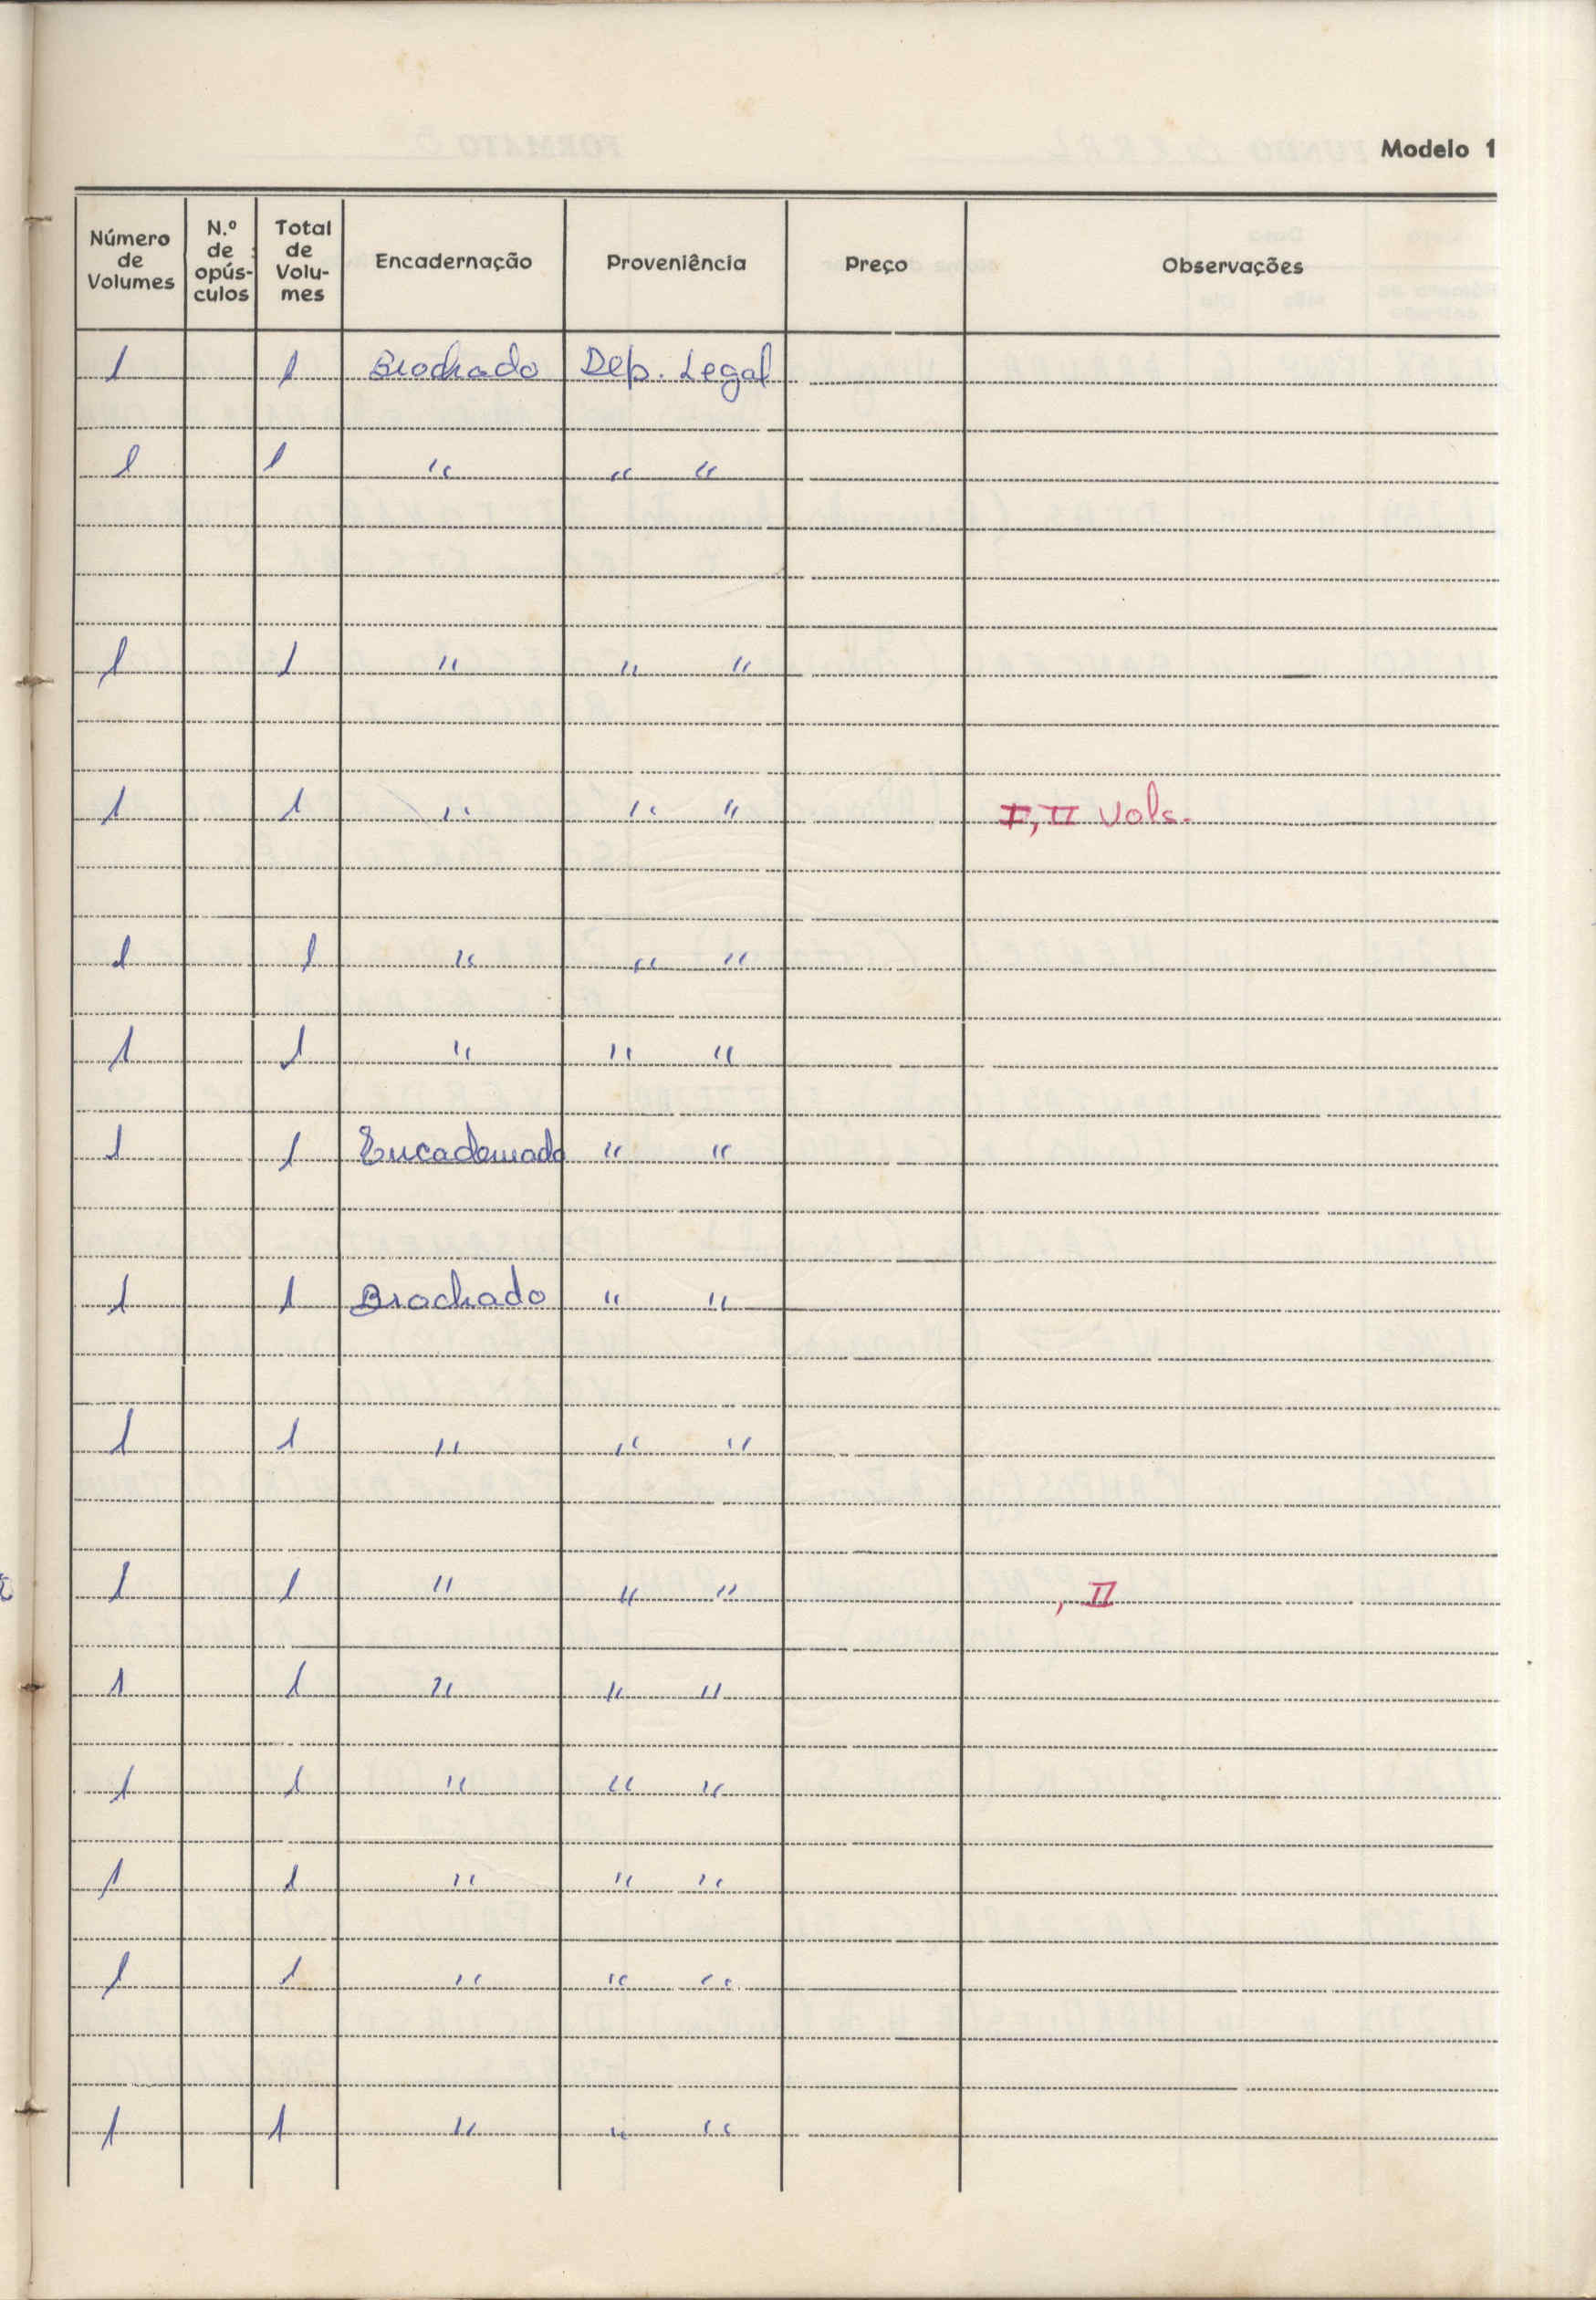 Modelo 1
Número de Volumes N.º de opús-culos Total de Volu-mes Encadernação Proveniência Preço Observações
1 1 Brochado Dep. Legal
1 1 " " "
1 1 " " "
1 1 " " " I, II vols.
1 1 " " "
1 1 " " "
1 1 Encadernado " "
1 1 Brochado " "
1 1 " " "
1 1 " " " , II
1 1 " " "
1 1 " " "
1 1 " " "
1 1 " " "
1 1 " " "